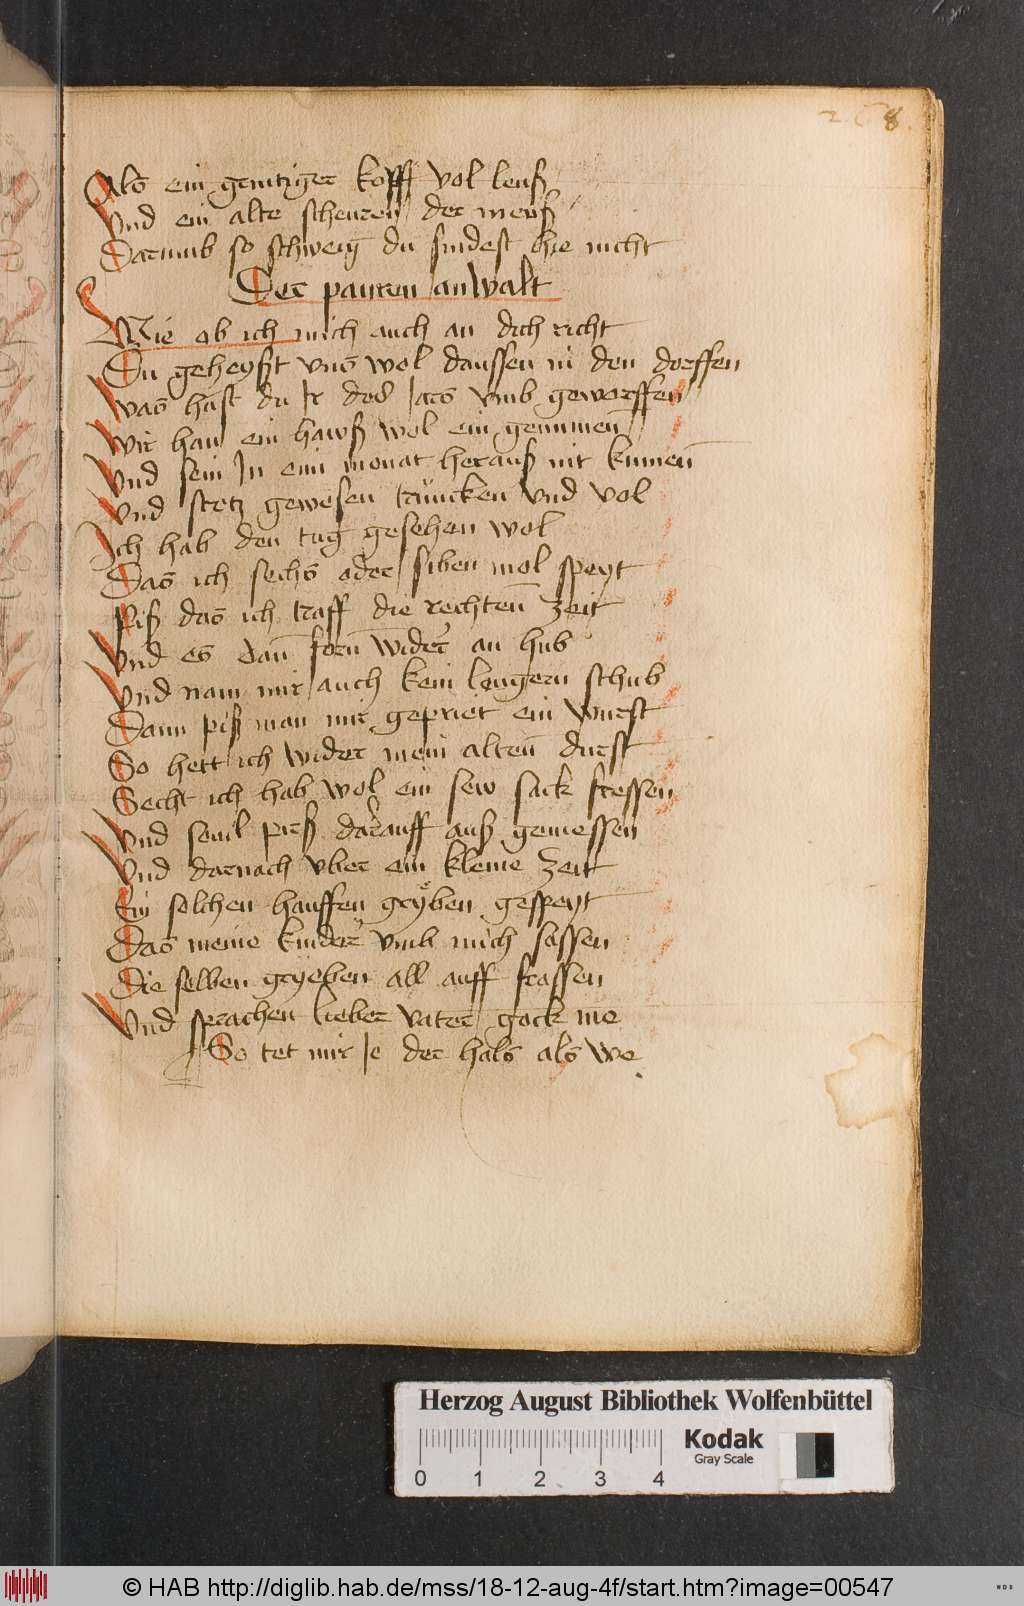 268
Als ein grintziger kopff vol leuß
Vnd ein alte scheuren der meuß
Darumb so schweig du findest hie nicht
Der pauren anwalt
Nie ob ich mich auch an dich richt
Du geheyßt vns wol daussen in den dorffen
Was hast du Ir das Iars vmb geworffen
Wir han ein hawß wol ein genumen
Vnd sein In eim monat herauß nit kumen
Vnd stetz gewesen truncken vnd vol
Ich hab den tag gesehen wol
Das ich sechs oder siben mol speyt
Piß das ich traff die rechten zeit
Vnd es dan forn wider an hub
Vnd nam mir auch kein lengern schub
Dann piß man mir gepriet ein wurst
So hett ich wider mein alten durst
Secht ich hab wol ein sew sack fressen
Vnd souil pirß darauff auß gemessen
Vnd darnach vber ein kleine zeit
Ein solchen hauffen gryben gespeyt
Das meine kinder vmb mich sassen
Die selben gryeben all auff frassen
Vnd sprachen lieber vater gock me
So tet mir Ie der hals als we
Herzog August Bibliothek Wolfenbüttel
Kodak
Gray Scale
0 1 2 3 4
© HAB http://diglib.hab.de/mss/18-12-aug-4f/start.htm?image=00547
WDB